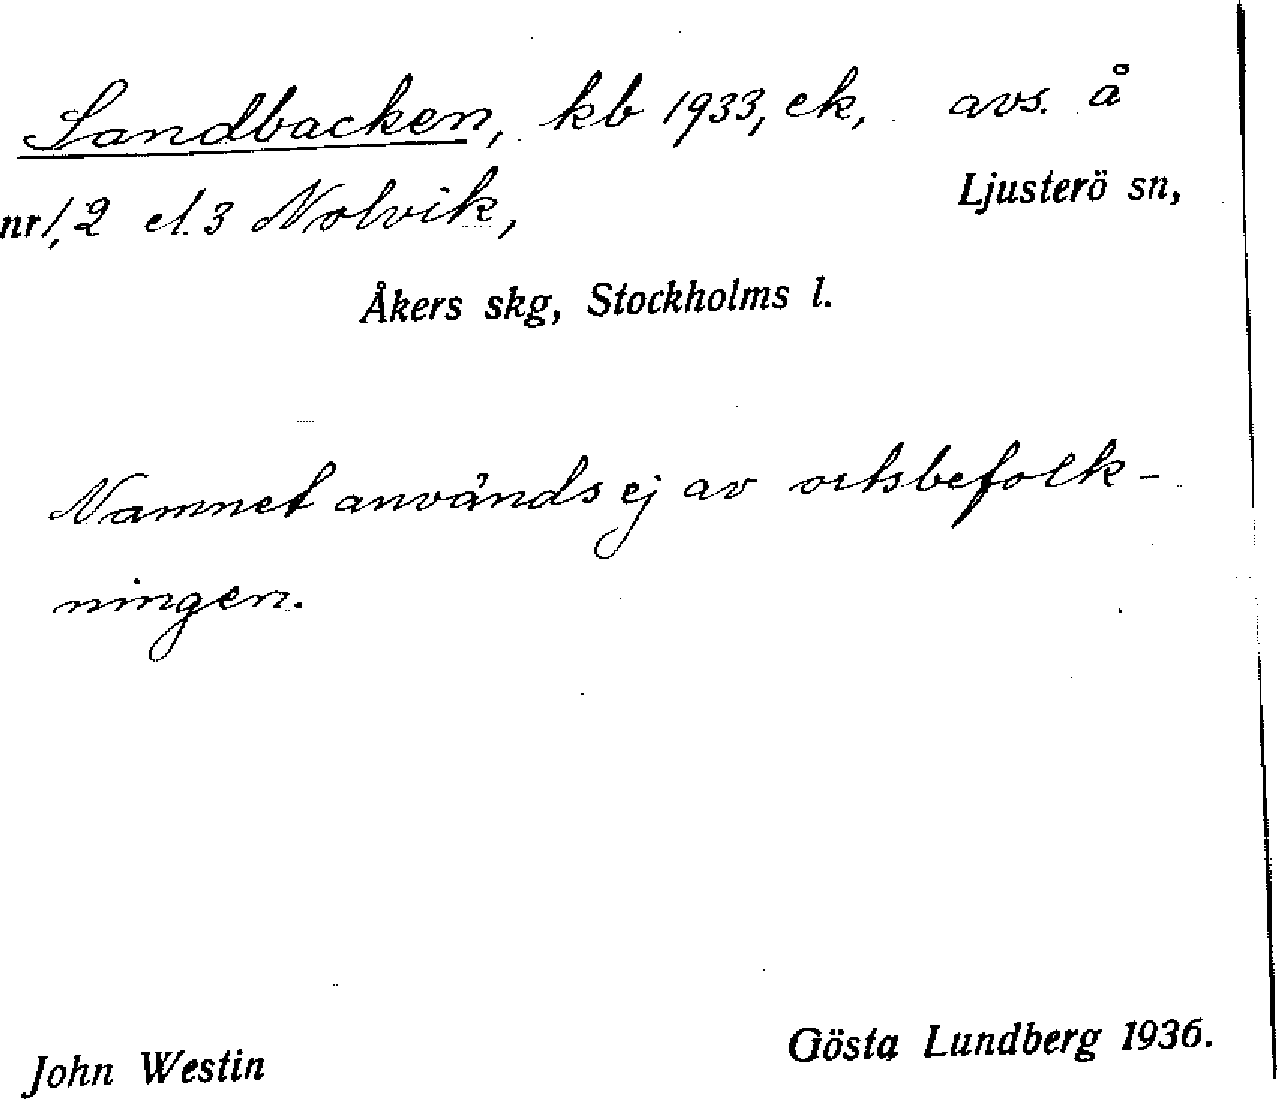 Sandbacken, kb 1933, ek, avs. å
nr 1, 2 el. 3 Nolvik, Ljusterö sn,
Åkers skg, Stockholms l.
Namnet används ej av ortsbefolk-
ningen.
John Westin Gösta Lundberg 1936.